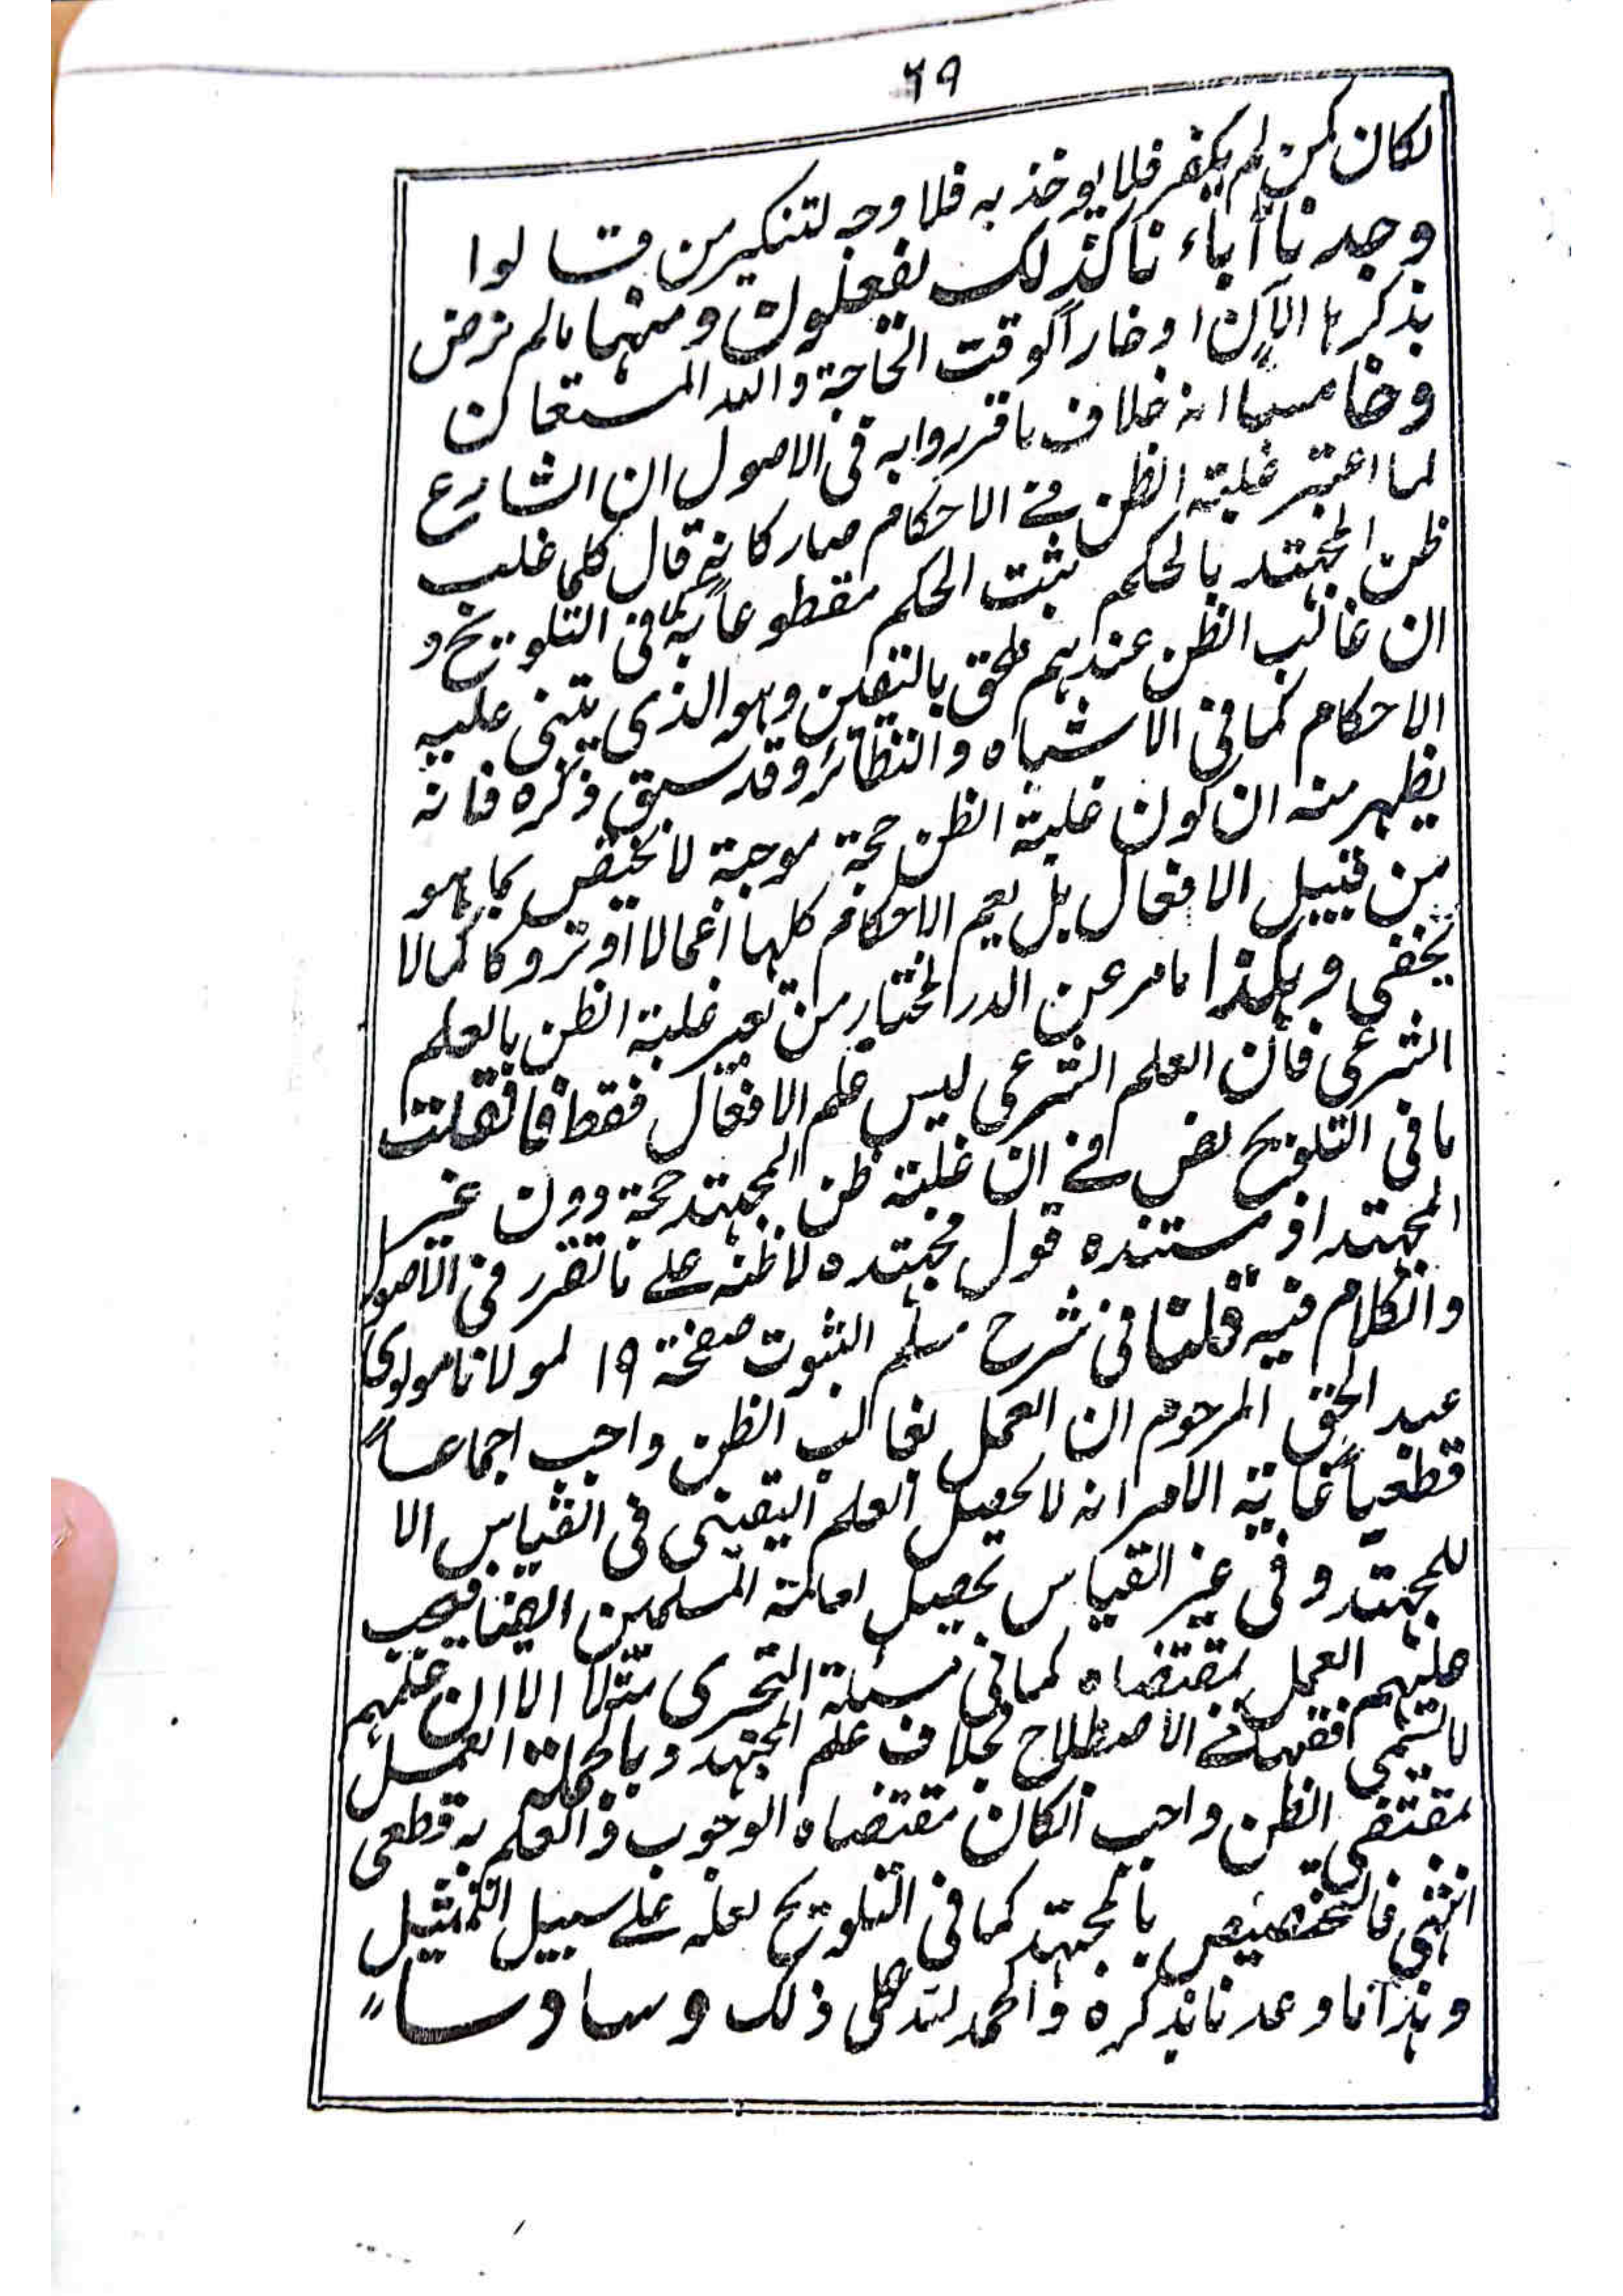 ٦٩
لكان كمن لم يكفر فلا يوخذ به فلا وجه لتنكير من قالوا
وجدنا أباءنا كذلك يفعلون ومنها مالم نرض
بذكرها الآن اوخاراً لوقت الحاجة والله المستعان
وخامساً انه خلاف ما قرروا به فى الاصول ان الشارع
لما اعتبر غلبة الظن فے الاحكام صار كانه قال كلما غلب
ظن المجتهد بالحكم يثبت الحكم مقطوعاً به كما فى التلويح و
ان غالب الظن عندهم ملحق باليقين وهو الذى يبتنى عليه
الاحكام كما فى الاشباه والنظائر وقد سبق ذكره فانه
يظهر منه ان كون غلبة الظن حجة موجبة لا يختص بما هو
من قبيل الافعال بل يعم الاحكام كلها أعمالا أو تروكا كما لا
يخفى وهكذا مامر عن الدر المختار من تعبير غلبة الظن بالعلم
الشرعى فأن العلم الشرعى ليس علم الافعال فقط فان قلت
ما فى التلويح نص فے ان غلبة ظن المجتهد حجة دون غير
المجتهد اذ مستنده قول مجتهده لا ظنه علے ما تقرر فى الاصول
والكلام فيه قلنا فى شرح مسلم الثبوت صفحة ١٩ لمولانا مولوى
عبد الحق المرحوم ان العمل بغالب الظن واجب اجماعاً
قطعياً غاية الامر انه لا يحصل العلم اليقينى فى القياس الا
للمجتهد وفى غير القياس يحصل لعامة المسلمين ايضا فيجب
عليهم العمل بمقتضاه كما فى مسئلة التحرى مثلا الا ان علمهم
لا يسمى فقها فے الاصطلاح بخلاف علم المجتهد وبالجملة العمل
بمقتضى الظن واجب انكان مقتضاه الوجوب والعلم به قطعى
انتهى فالتخصيص بالمجتهد كما فى التلويح لعله علے سبيل التمثيل
وهذا ما وعدنا بذكره والحمد لله على ذلك وسادساً